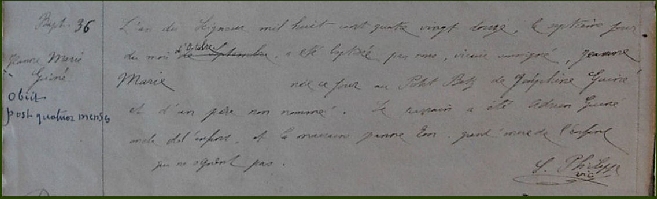 Bapt. 36
Jeanne Marie
Guiné
obiit
post quatuor menses
L'an du Seigneur mil huit cent quatre vingt douze, le septième jour
du mois de Septembre d'Octobre, a été baptisée par nous, vicaire soussigné, Jeanne
Marie née ce jour au Petit Betz de Joséphine Guiné
et d'un père non nommé. Le parrain a été Adrien Guiné
oncle de l'enfant, et la marraine Jeanne grand'mère de l'enfant
qui ne signent pas.
S. Philippe
vic.